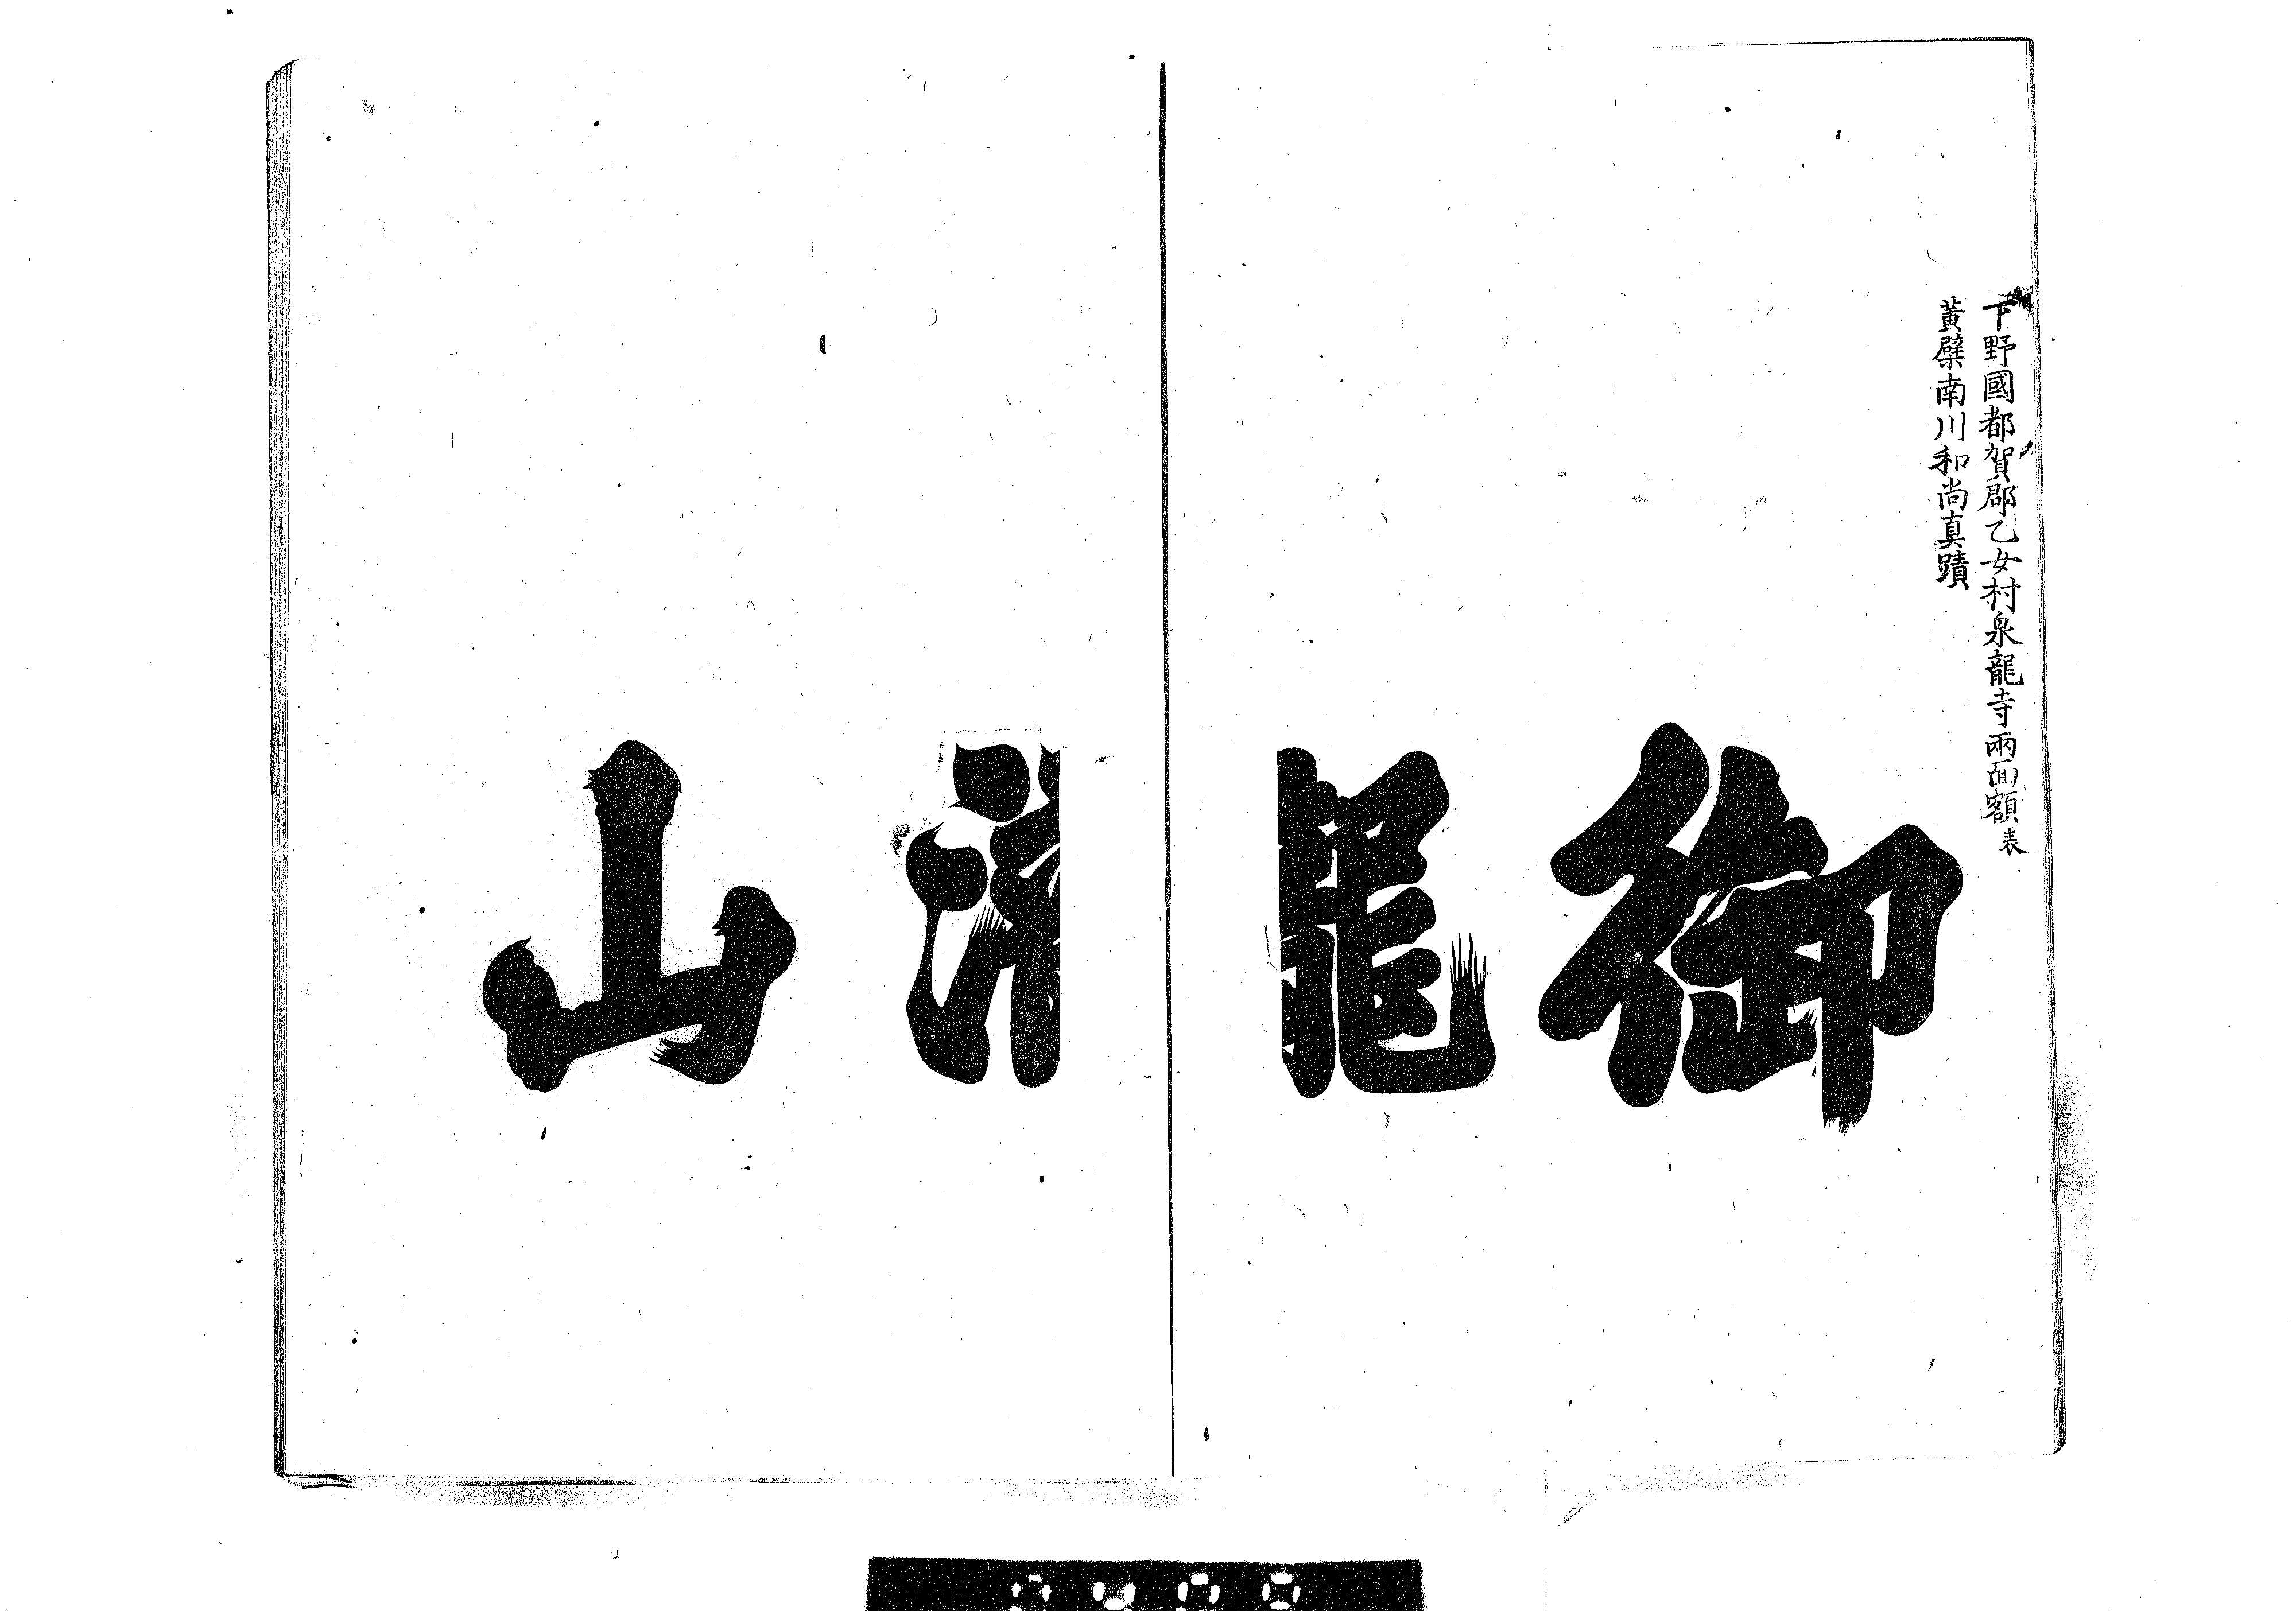 下野國都賀郡乙女村泉龍寺兩面額 表
黃檗南川和尚真蹟
御
龍
山